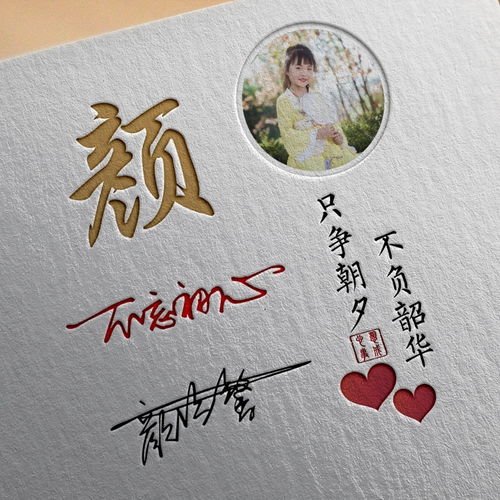 颜
不忘初心
只争朝夕
不负韶华